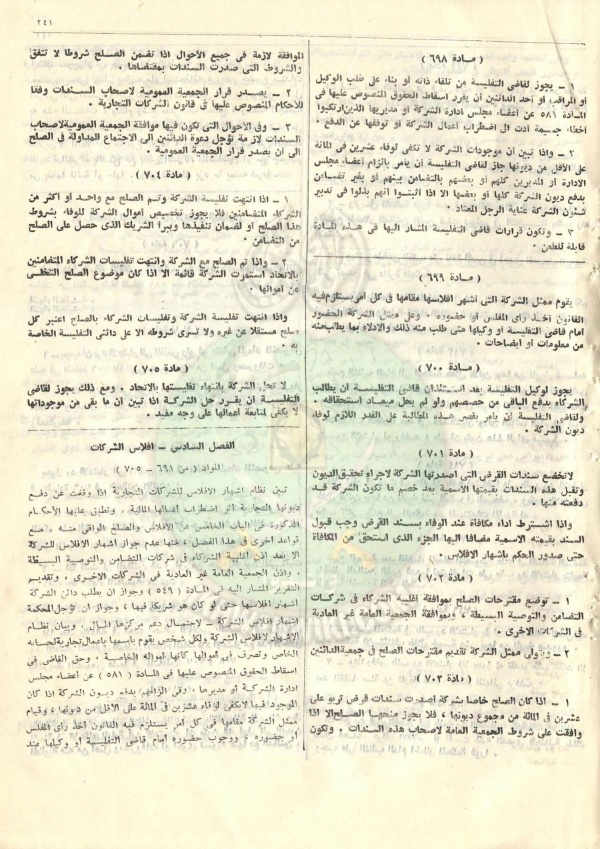 ٢٤١
( مادة ٦٩٨ )
١ ـ يجوز لقاضى التفليسة من تلقاء ذاته أو بناء على طلب الوكيل
أو المراقب أو أحد الدائنين أن يقرر اسقاط الحقوق المنصوص عليها فى
المادة ٥٨١ عن أعضاء مجلس ادارة الشركة أو مديريها الذين ارتكبوا
اخطاء جسيمة ادت الى اضطراب أعمال الشركة أو توقفها عن الدفع .
٢ ـ واذا تبين أن موجودات الشركة لا تكفى لوفاء عشرين فى المائة
على الأقل من ديونها جاز لقاضى التفليسة أن يأمر بالزام أعضاء مجلس
الادارة أو المديرين كلهم أو بعضهم بالتضامن بينهم أو بغير تضامن
بدفع ديون الشركة كلها أو بعضها الا اذا اثبتوا أنهم بذلوا فى تدبير
شئون الشركة عناية الرجل المعتاد .
٣ ـ وتكون قرارات قاضى التفليسة المشار اليها فى هذه المادة
قابلة للطعن .
( مادة ٦٩٩ )
يقوم ممثل الشركة التى أشهر افلاسها مقامها فى كل أمر يستلزم فيه
القانون أخذ رأى المفلس أو حضوره . وعلى ممثل الشركة الحضور
أمام قاضى التفليسة أو وكيلها متى طلب منه ذلك والادلاء بما يطلب منه
من معلومات أو ايضاحات .
( مادة ٧٠٠ )
يجوز لوكيل التفليسة بعد استئذان قاضى التفليسة أن يطالب
الشركاء بدفع الباقى من حصصهم ولو لم يحل ميعاد استحقاقه .
ولقاضى التفليسة أن يأمر بقصر هذه المطالبة على القدر اللازم لوفاء
ديون الشركة .
( مادة ٧٠١ )
لا تخضع سندات القرض التى أصدرتها الشركة لاجراء تحقيق الديون
وتقبل هذه السندات بقيمتها الاسمية بعد خصم ما تكون الشركة قد
دفعته منها .
واذا اشترط أداء مكافأة عند الوفاء بسند القرض وجب قبول
السند بقيمته الاسمية مضافا اليها الجزء الذى استحق من المكافأة
حتى صدور الحكم باشهار الافلاس .
( مادة ٧٠٢ )
١ ـ توضع مقترحات الصلح بموافقة اغلبية الشركاء فى شركات
التضامن والتوصية البسيطة ، وبموافقة الجمعية العامة غير العادية
فى الشركات الاخرى .
٢ ـ ويتولى ممثل الشركة تقديم مقترحات الصلح فى جمعية الدائنين
( مادة ٧٠٣ )
١ ـ اذا كان الصلح خاصا بشركة أصدرت سندات قرض تربو على
عشرين فى المائة من مجموع ديونها ، فلا يجوز منحها الصلح الا اذا
وافقت على شروطه الجمعية العامة لاصحاب هذه السندات . وتكون
الموافقة لازمة فى جميع الأحوال اذا تضمن الصلح شروطا لا تتفق
والشروط التى صدرت السندات بمقتضاها .
٢ ـ يصدر قرار الجمعية العمومية لاصحاب السندات وفقا
للأحكام المنصوص عليها فى قانون الشركات التجارية .
٣ ـ وفى الأحوال التى تكون فيها موافقة الجمعية العمومية لاصحاب
السندات لازمة تؤجل دعوة الدائنين الى الاجتماع للمداولة فى الصلح
الى أن يصدر قرار الجمعية العمومية .
( مادة ٧٠٤ )
١ ـ اذا انتهت تفليسة الشركة وتم الصلح مع واحد أو أكثر من
الشركاء المتضامنين فلا يجوز تخصيص أموال الشركة للوفاء بشروط
هذا الصلح أو لضمان تنفيذها ويبرأ الشريك الذى حصل على الصلح
من التضامن .
٢ ـ واذا تم الصلح مع الشركة وانتهت تفليسات الشركاء المتضامنين
بالاتحاد استمرت الشركة قائمة الا اذا كان موضوع الصلح التخلى
عن أموالها .
واذا انتهت تفليسة الشركة وتفليسات الشركاء بالصلح اعتبر كل
صلح مستقلا عن غيره ولا تسرى شروطه الا على دائنى التفليسة الخاصة
به .
( مادة ٧٠٥ )
لا تحل الشركة بانتهاء تفليستها بالاتحاد . ومع ذلك يجوز لقاضى
التفليسة أن يقرر حل الشركة اذا تبين أن ما بقى من موجوداتها
لا يكفى لمتابعة أعمالها على وجه مفيد .
الفصل السادس ـ افلاس الشركات
( المواد من ٦٩١ ـ ٧٠٥ )
تبين نظام اشهار الافلاس للشركات التجارية اذا وقفت عن دفع
ديونها التجارية أثر اضطراب أعمالها المالية . وتطبق عليها الأحكام
المذكورة فى الباب الخامس عن الافلاس والصلح الواقى منه . مع
قواعد اخرى فى هذا الفصل ، منها عدم جواز اشهار الافلاس للشركة
الا بعد اذن أغلبية الشركاء فى شركات التضامن والتوصية البسيطة
، واذن الجمعية العامة غير العادية فى الشركات الاخرى ، وتقديم
التقرير المشار اليه فى المادة ( ٥٤٩ ) وجواز أن يطلب دائن الشركة
اشهار افلاسها حتى لو كان هو شريكا فيها ، وجواز أن تؤجل المحكمة
اشهار افلاس الشركة ـ لاحتمال دعم مركزها المالى ، وبيان نظام
الاشهار لافلاس الشركة ولكل شخص يقوم باسمها بأعمال تجارية لحسابه
الخاص وتصرف فى أموالها كأنها أمواله الخاصة ، وحق القاضى فى
اسقاط الحقوق المنصوص عليها فى المادة ( ٥٨١ ) عن أعضاء مجلس
ادارة الشركة أو مديرها . وفى الزامهم بدفع ديون الشركة اذا كان
الموجود فيها لا يكفى لوفاء عشرين فى المائة على الأقل من ديونها ، وقيام
ممثل الشركة مقامها فى كل أمر يستلزم فيه القانون أخذ رأى المفلس
أو حضوره ، ووجوب حضوره أمام قاضى التفليسة أو وكيلها عند